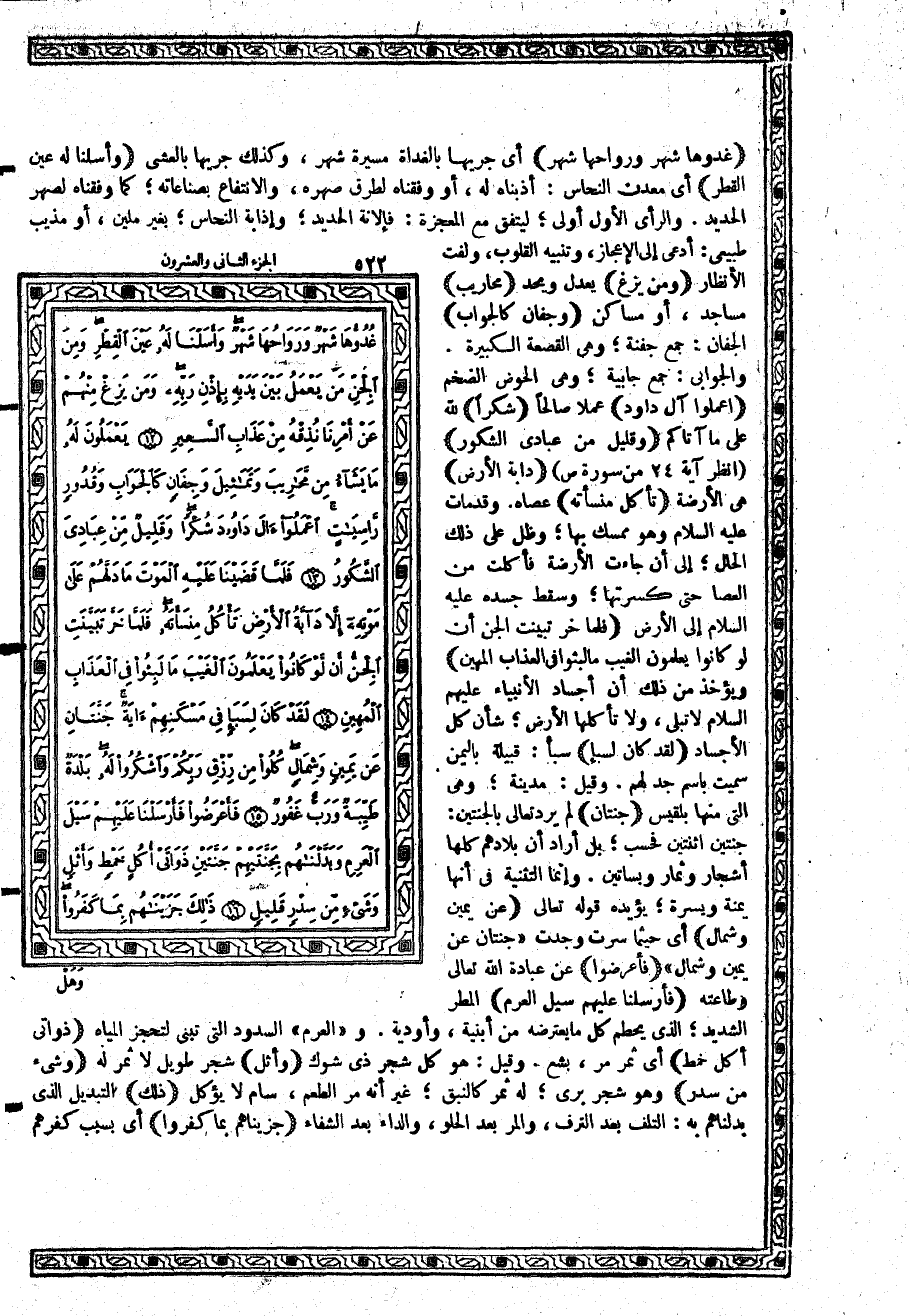 (غدوها شهر ورواحها شهر) أى جريها بالغداة مسيرة شهر ، وكذلك جريها بالعشى (وأسلنا له عين
القطر) أى معدن النحاس : أذبناه له ، أو وفقناه لطرق صهره ، والانتفاع بصناعاته ؛ كما وفقناه لصهر
الحديد . والرأى الأول أولى ؛ ليتفق مع المعجزة : فإلانة الحديد ؛ وإذابة النحاس ؛ بغير ملين ، أو مذيب
طبيعى : أدعى إلى الإعجاز ، وتنبيه القلوب ، ولفت
الأنظار (ومن يزغ) يعدل ويحد (محاريب)
مساجد ، أو مساكن (وجفان كالجواب)
الجفان : جمع جفنة ؛ وهى القصعة الكبيرة .
والجوابى : جمع جابية ؛ وهى الحوض الضخم
(اعملوا آل داود) عملا صالحاً (شكراً) لله
على ما آتاكم (وقليل من عبادى الشكور)
(انظر آية ٢٤ من سورة ص) (دابة الأرض)
هى الأرضة (تأكل منسأته) عصاه. وقدمات
عليه السلام وهو ممسك بها ؛ وظل على ذلك
الحال ؛ إلى أن جاءت الأرضة فأكلت من
العصا حتى كسرتها ؛ وسقط جسده عليه
السلام إلى الأرض (فلما خر تبينت الجن أن
لو كانوا يعلمون الغيب مالبثوا فى العذاب المهين)
ويؤخذ من ذلك أن أجساد الأنبياء عليهم
السلام لاتبلى ، ولا تأكلها الأرض ؛ شأن كل
الأجساد (لقد كان لسبإ) سبأ : قبيلة باليمن
سميت باسم جد لهم . وقيل : مدينة ؛ وهى
التى منها بلقيس (جنتان) لم يرد تعالى بالجنتين :
جنتين اثنتين فحسب ؛ بل أراد أن بلادهم كلها
أشجار وثمار وبساتين . وإنما التثنية فى أنها
يمنة ويسرة ؛ يؤيده قوله تعالى (عن يمين
وشمال) أى حيثما سرت وجدت «جنتان عن
يمين وشمال» (فأعرضوا) عن عبادة الله تعالى
وطاعته (فأرسلنا عليهم سيل العرم) المطر
الشديد ؛ الذى يحطم كل مايعترضه من أبنية ، وأودية . و «العرم» السدود التى تبنى لتحجز المياه (ذواتى
أكل خمط) أى ثمر مر ، بشع . وقيل : هو كل شجر ذى شوك (وأثل) شجر طويل لا ثمر له (وشىء
من سدر) وهو شجر برى ؛ له ثمر كالنبق ؛ غير أنه مر الطعم ، سام لا يؤكل (ذلك) التبديل الذى
بدلناهم به : التلف بعد الترف ، والمر بعد الحلو ، والداء بعد الشفاء (جزيناهم بما كفروا) أى بسبب كفرهم
٥٢٢ الجزء الثانى والعشرون
غُدُوُّهَا شَهْرٌ وَرَوَاحُهَا شَهْرٌ وَأَسَلْنَا لَهُۥ عَيْنَ ٱلْقِطْرِ وَمِنَ
ٱلْجِنِّ مَن يَعْمَلُ بَيْنَ يَدَيْهِ بِإِذْنِ رَبِّهِۦ وَمَن يَزِغْ مِنْهُمْ
عَنْ أَمْرِنَا نُذِقْهُ مِنْ عَذَابِ ٱلسَّعِيرِ ١٢ يَعْمَلُونَ لَهُۥ
مَا يَشَآءُ مِن مَّحَٰرِيبَ وَتَمَٰثِيلَ وَجِفَانٍ كَٱلْجَوَابِ وَقُدُورٍ
رَّاسِيَٰتٍ ٱعْمَلُوٓا۟ ءَالَ دَاوُۥدَ شُكْرًا وَقَلِيلٌ مِّنْ عِبَادِىَ
ٱلشَّكُورُ ١٣ فَلَمَّا قَضَيْنَا عَلَيْهِ ٱلْمَوْتَ مَا دَلَّهُمْ عَلَىٰ
مَوْتِهِۦٓ إِلَّا دَآبَّةُ ٱلْأَرْضِ تَأْكُلُ مِنسَأَتَهُۥ فَلَمَّا خَرَّ تَبَيَّنَتِ
ٱلْجِنُّ أَن لَّوْ كَانُوا۟ يَعْلَمُونَ ٱلْغَيْبَ مَا لَبِثُوا۟ فِى ٱلْعَذَابِ
ٱلْمُهِينِ ١٤ لَقَدْ كَانَ لِسَبَإٍ فِى مَسْكَنِهِمْ ءَايَةٌ جَنَّتَانِ
عَن يَمِينٍ وَشِمَالٍ كُلُوا۟ مِن رِّزْقِ رَبِّكُمْ وَٱشْكُرُوا۟ لَهُۥ بَلْدَةٌ
طَيِّبَةٌ وَرَبٌّ غَفُورٌ ١٥ فَأَعْرَضُوا۟ فَأَرْسَلْنَا عَلَيْهِمْ سَيْلَ
ٱلْعَرِمِ وَبَدَّلْنَٰهُم بِجَنَّتَيْهِمْ جَنَّتَيْنِ ذَوَاتَىْ أُكُلٍ خَمْطٍ وَأَثْلٍ
وَشَىْءٍ مِّن سِدْرٍ قَلِيلٍ ١٦ ذَٰلِكَ جَزَيْنَٰهُم بِمَا كَفَرُوا۟
وَهَلْ